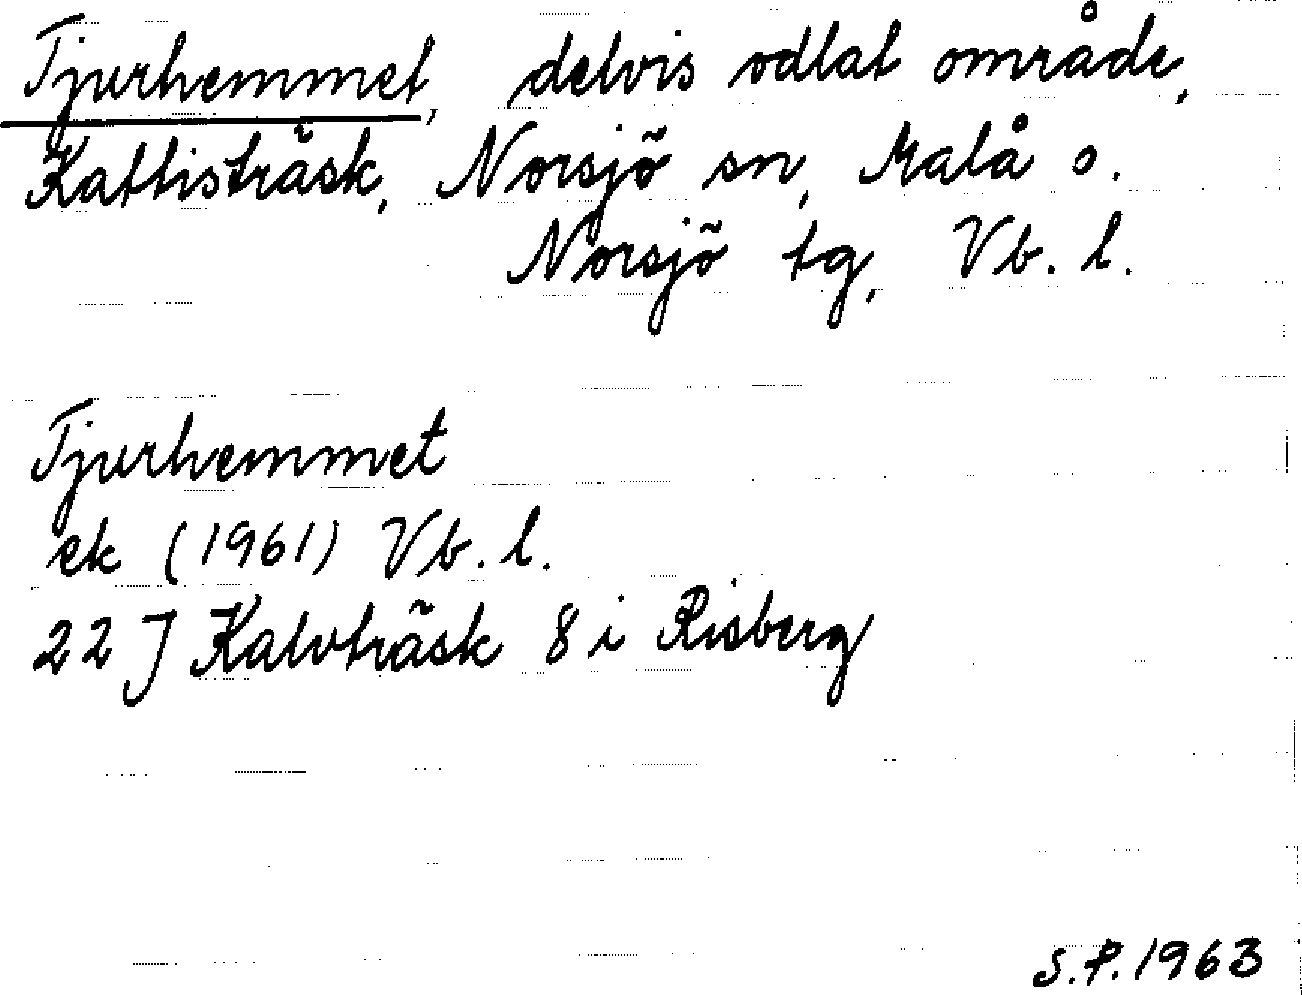 Tjurhemmet, delvis odlat område,
Kattisträsk, Norsjö sn, Malå o.
Norsjö tg, Vb. l.
Tjurhemmet
ek (1961) Vb. l.
22 J Kalvträsk 8 i Risberg
S.P. 1963